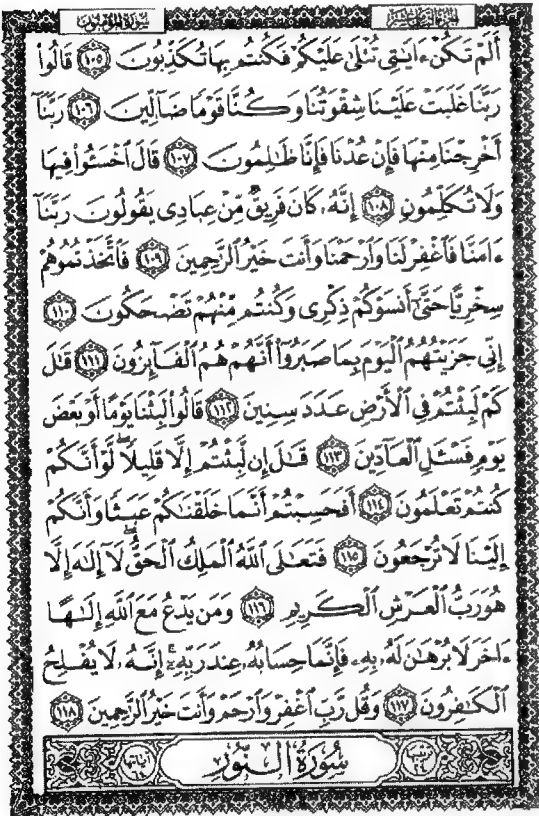 سورة المؤمنون الجزء الثامن عشر
أَلَمْ تَكُنْ ءَايَٰتِى تُتْلَىٰ عَلَيْكُمْ فَكُنتُم بِهَا تُكَذِّبُونَ ١٠٥ قَالُوا۟
رَبَّنَا غَلَبَتْ عَلَيْنَا شِقْوَتُنَا وَكُنَّا قَوْمًا ضَآلِّينَ ١٠٦ رَبَّنَآ
أَخْرِجْنَا مِنْهَا فَإِنْ عُدْنَا فَإِنَّا ظَٰلِمُونَ ١٠٧ قَالَ ٱخْسَـُٔوا۟ فِيهَا
وَلَا تُكَلِّمُونِ ١٠٨ إِنَّهُۥ كَانَ فَرِيقٌ مِّنْ عِبَادِى يَقُولُونَ رَبَّنَآ
ءَامَنَّا فَٱغْفِرْ لَنَا وَٱرْحَمْنَا وَأَنتَ خَيْرُ ٱلرَّٰحِمِينَ ١٠٩ فَٱتَّخَذْتُمُوهُمْ
سِخْرِيًّا حَتَّىٰٓ أَنسَوْكُمْ ذِكْرِى وَكُنتُم مِّنْهُمْ تَضْحَكُونَ ١١٠
إِنِّى جَزَيْتُهُمُ ٱلْيَوْمَ بِمَا صَبَرُوٓا۟ أَنَّهُمْ هُمُ ٱلْفَآئِزُونَ ١١١ قَٰلَ
كَمْ لَبِثْتُمْ فِى ٱلْأَرْضِ عَدَدَ سِنِينَ ١١٢ قَالُوا۟ لَبِثْنَا يَوْمًا أَوْ بَعْضَ
يَوْمٍ فَسْـَٔلِ ٱلْعَآدِّينَ ١١٣ قَٰلَ إِن لَّبِثْتُمْ إِلَّا قَلِيلًا ۖ لَّوْ أَنَّكُمْ
كُنتُمْ تَعْلَمُونَ ١١٤ أَفَحَسِبْتُمْ أَنَّمَا خَلَقْنَٰكُمْ عَبَثًا وَأَنَّكُمْ
إِلَيْنَا لَا تُرْجَعُونَ ١١٥ فَتَعَٰلَى ٱللَّهُ ٱلْمَلِكُ ٱلْحَقُّ ۖ لَآ إِلَٰهَ إِلَّا
هُوَ رَبُّ ٱلْعَرْشِ ٱلْكَرِيمِ ١١٦ وَمَن يَدْعُ مَعَ ٱللَّهِ إِلَٰهًا
ءَاخَرَ لَا بُرْهَٰنَ لَهُۥ بِهِۦ فَإِنَّمَا حِسَابُهُۥ عِندَ رَبِّهِۦٓ ۚ إِنَّهُۥ لَا يُفْلِحُ
ٱلْكَٰفِرُونَ ١١٧ وَقُل رَّبِّ ٱغْفِرْ وَٱرْحَمْ وَأَنتَ خَيْرُ ٱلرَّٰحِمِينَ ١١٨
سُورَةُ ٱلنُّورِ آياتها ٦٤